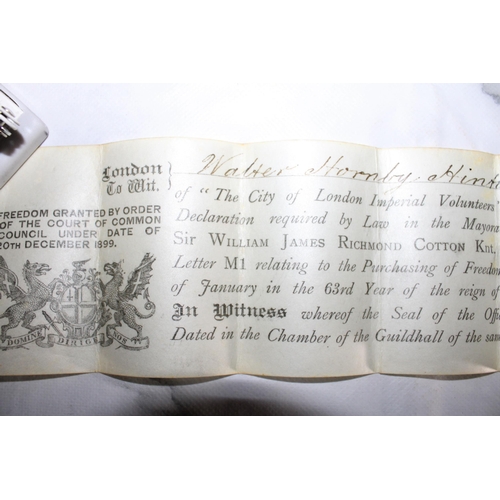 London
To Wit.
FREEDOM GRANTED BY ORDER
OF THE COURT OF COMMON
COUNCIL UNDER DATE OF
20TH DECEMBER 1899.
DOMINE DIRIGE NOS
Walter Hornby Hint
of "The City of London Imperial Volunteers"
Declaration required by Law in the Mayora
Sir WILLIAM JAMES RICHMOND COTTON Knt.
Letter M1 relating to the Purchasing of Freedom
of January in the 63rd Year of the reign of
In Witness whereof the Seal of the Offic
Dated in the Chamber of the Guildhall of the sam